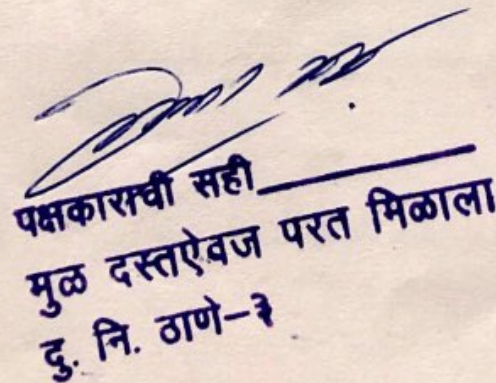 पक्षकाराची सही
मुळ दस्तऐवज परत मिळाला
दु. नि. ठाणे-३